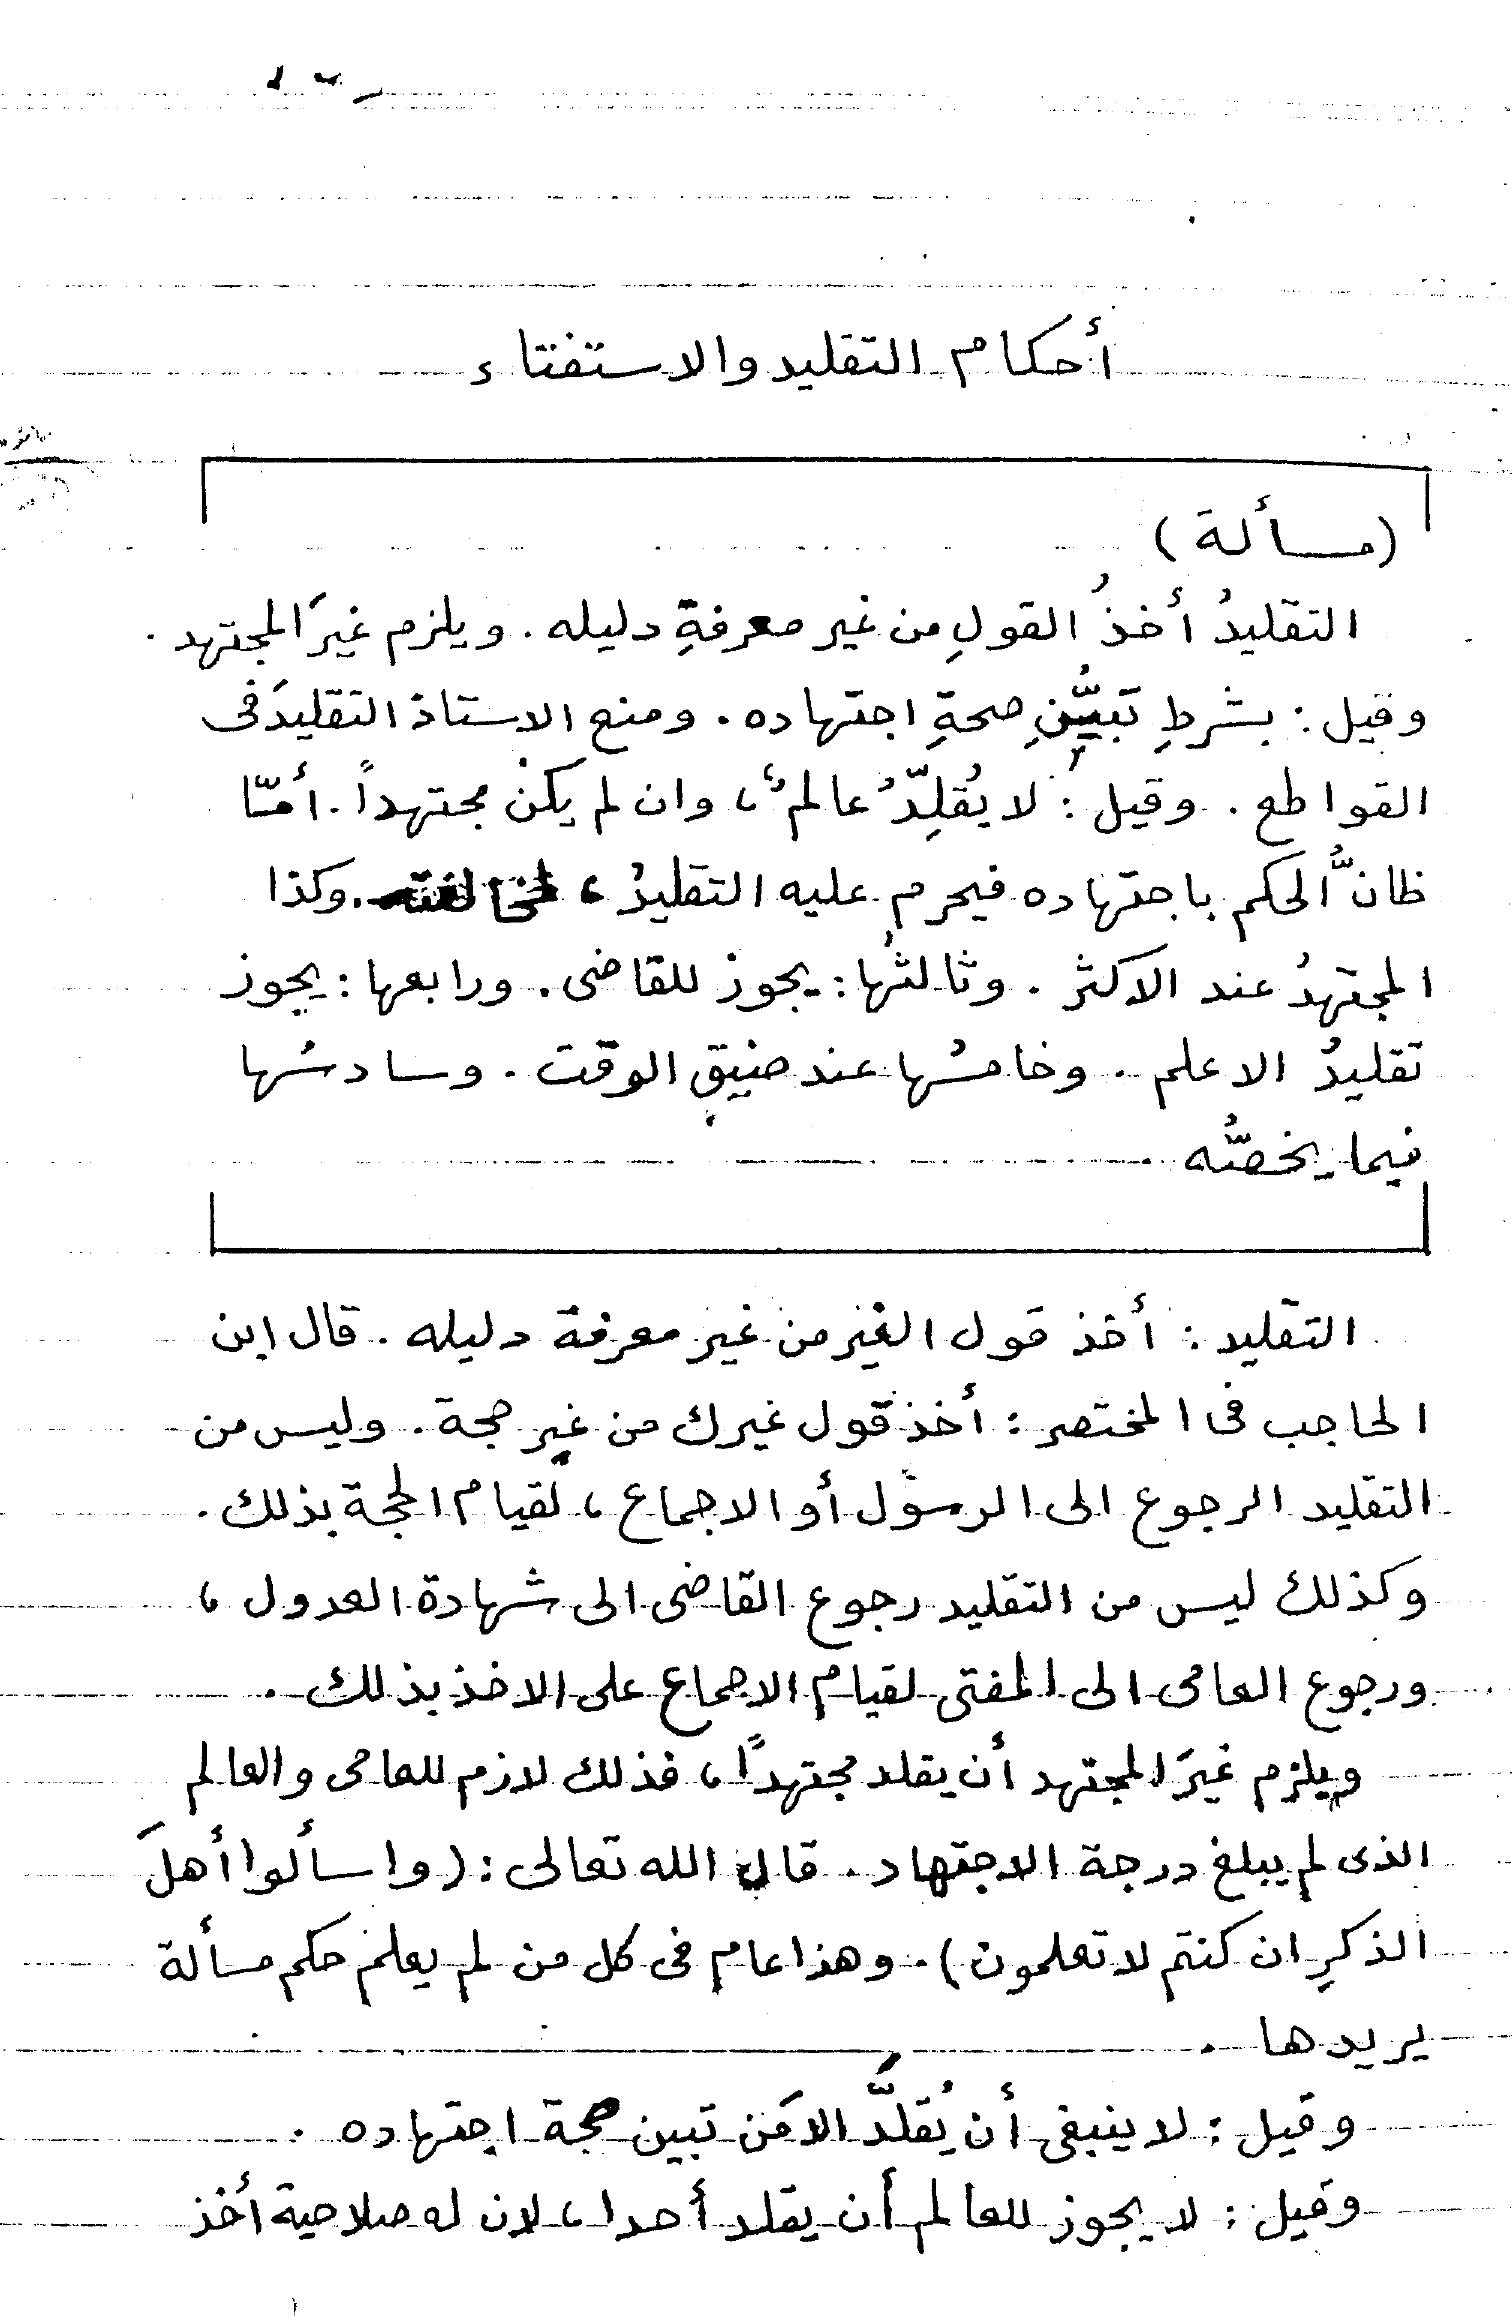 أحكام التقليد والاستفتاء
(مسألة)
التقليدُ أخذُ القولِ من غير معرفةِ دليله. ويلزم غيرَ المجتهد.
وقيل: بشرطِ تبيُّنِ صحةِ اجتهاده. ومنع الاستاذ التقليدَ فى
القواطع. وقيل: لا يُقلِّدُ عالمٌ، وان لم يكنْ مجتهداً. أمّا
ظانُّ الحكم باجتهاده فيحرم عليه التقليدُ، لمخالفته. وكذا
المجتهدُ عند الاكثر. وثالثُها: يجوز للقاضى. ورابعها: يجوز
تقليدُ الاعلم. وخامسُها عند ضيقِ الوقت. وسادسُها
فيما يخصُّه.
التقليد: أخذ قول الغير من غير معرفة دليله. قال ابن
الحاجب فى المختصر: أخذ قول غيرك من غير حجة. وليس من
التقليد الرجوع الى الرسول أو الاجماع، لقيام الحجة بذلك.
وكذلك ليس من التقليد رجوع القاضى الى شهادة العدول،
ورجوع العامى الى المفتى لقيام الاجماع على الاخذ بذلك.
ويلزم غيرَ المجتهد أن يقلد مجتهدًا، فذلك لازم للعامى والعالم
الذى لم يبلغ درجة الاجتهاد. قال الله تعالى: (واسألوا أهلَ
الذكرِ ان كنتم لا تعلمون). وهذا عام فى كل من لم يعلم حكم مسألة
يريدها.
وقيل: لا ينبغى أن يُقلَّد الا مَن تبين صحة اجتهاده.
وقيل: لا يجوز للعالم أن يقلد أحدا، لان له صلاحية أخذ